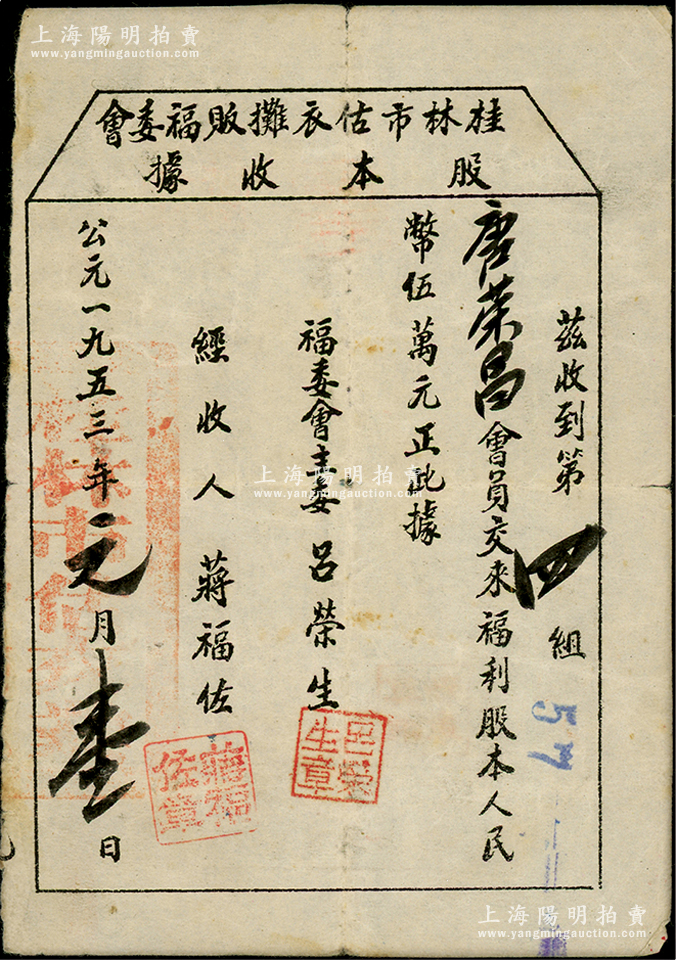 上海陽明拍賣
www.yangmingauction.com
上海陽明拍賣
www.yangmingauction.com
桂林市估衣攤販福委會
股本收據
茲收到第四組
57
唐荣昌會員交来福利股本人民
幣伍萬元正此據
福委會主委 呂榮生
呂榮生章
經收人 蔣福佐
蔣福佐章
公元一九五三年元月壹日
桂林市估
上海陽明拍賣
www.yangmingauction.com
上海陽明拍賣
www.yangmingauction.com